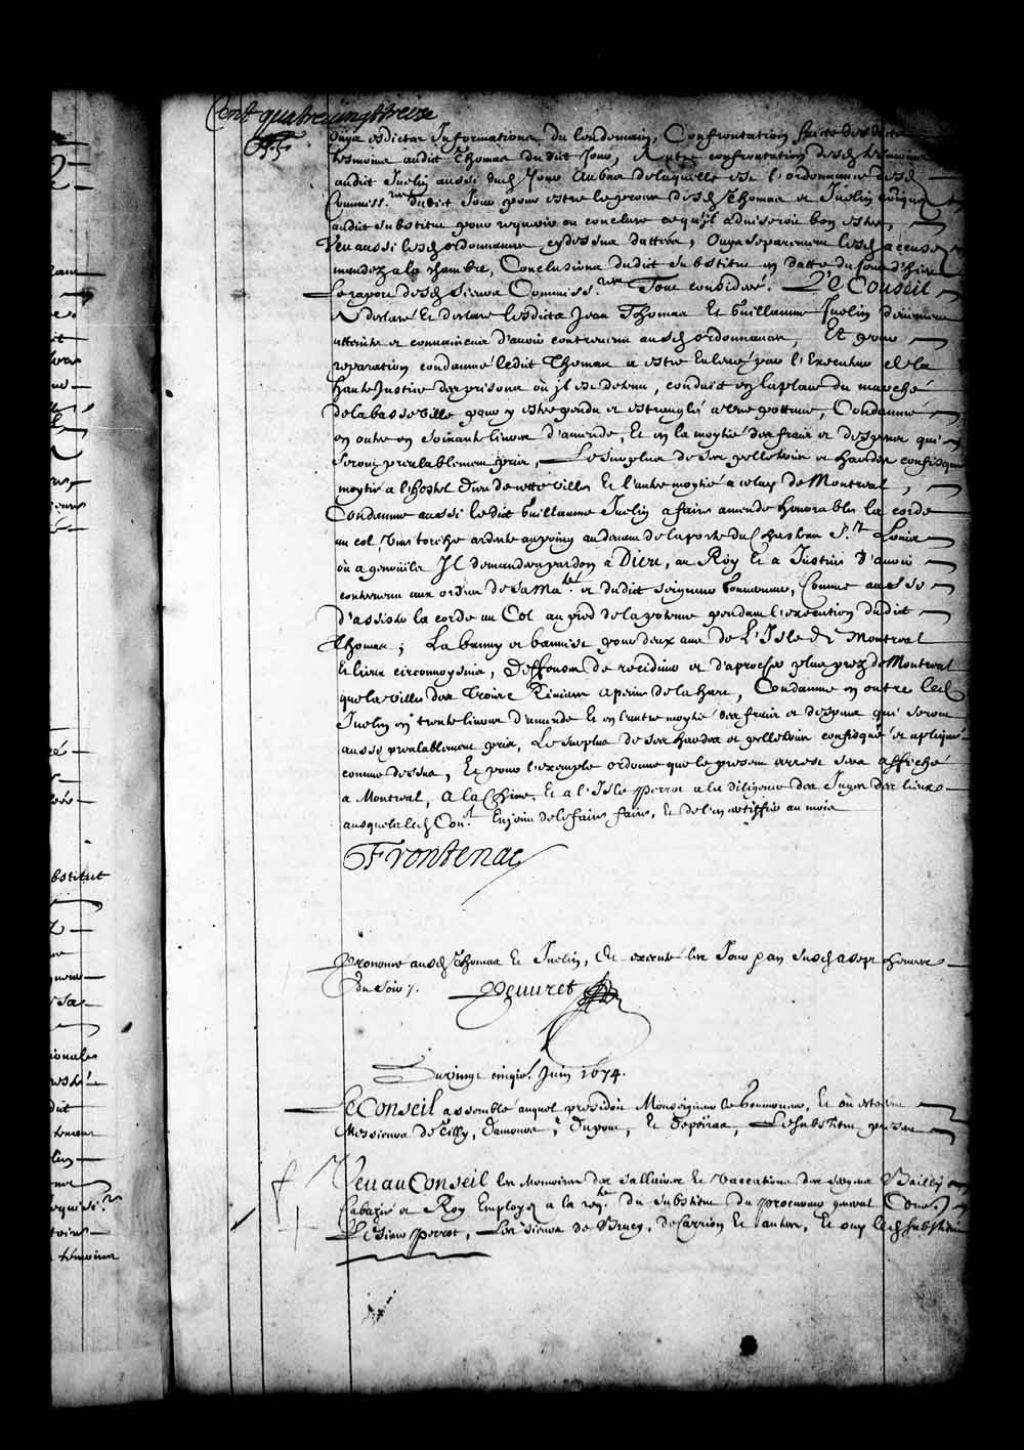 Cent quatreuingt treize
Ouÿe esdictes Informations du lendemain, Confrontation faicte desdicts
tesmoins audict Thomas dudict Jour, Autre confrontation desd. tesmoins
audict Juelin aussi dud. Jour Au bas de laquelle est l'ordonnance desd.
Commiss.res dudict Jour pour estre le proces desd. Thomas et Juelin
audict substitut pour requerir ou conclure ce qu'il aduiseroit bon estre,
Veu aussi lesd. ordonnances cydessus dattées, Ouys separement lesd. accusez
mandez a la chambre, Conclusions dudict substitut en datte du jour d'hier
Le raport desd. sieurs Commiss.res Tout consideré. Le Conseil
A declaré Et declare lesdicts Jean Thomas Et Guillaume Juelin deüement
atteints et conuaincus d'auoir contreuenu ausd. ordonnances, Et pour
reparation condamné ledict Thomas a estre Enleué par l'Executeur de la
haute Justice des prisons où jl est detenu, conduict en la place du marché
de la basse ville pour y estre pendu et estranglé a une pottence, Condamné
en outre en soixante liures d'amende, Et en la moytié des frais et despens qui
seront prealablement pris, Le surplus de ses pelleteries et hardes confisqué
moytié a l'hostel Dieu de cette ville Et l'autre moytié a celuy de Montreal,
Condamne aussi ledict Guillaume Juelin a faire amende honorable la corde
au col, Une torche ardente au poing au deuant de la porte du Chasteau S.t Louis
où a genouille Jl demandera pardon a Dieu, au Roy Et a Justice d'auoir
contreuenu aux ordres de sa Ma.té et dudict seigneur Gouuerneur, Comme aussi
D'assister la corde au Col au pied de la potence pendant l'execution dudict
Thomas; La banny et bannist pour deux ans de L'Isle de Montreal
Et lieux circonuoysins, Deffenses de recidiuer et d'aprocher plus prez de Montreal
que la ville des Trois Riuieres a peine de la hart, Condamne en outre led.
Juelin en trente liures d'amende Et en l'autre moytié des frais et despens qui seront
aussy prealablement pris, Le surplus de ses hardes et pelleteries confisqué et apliqué
comme dessus, Et pour l'exemple ordonne que le present arrest sera affiché
a Montreal, A la Chine, Et a l'Isle Perrot a la diligence des Juges des lieux
ausquels led. Con.l Enjoint de le faire faire, Et de l'en certiffier au mois
Frontenac
Prononcé ausd. Thomas Et Juelin, Et executé les Jour et an susd. a sept heures
du soir /.
Peuuret
Du vingt cinqie. Juin 1674.
Le Conseil assemblé auquel presidoit Monseigneur le Gouuerneur, Et où estoient
Messieurs de Tilly, Damours, Dupont, Et Depeiras, Le substitut present
Veu au Conseil les Memoires des sallaires Et Vacations des sergens Bailly
Cabazié et Roy Employez a la req.te du substitut du procureur general Contre
Le sieur Perrot, Les sieurs de Brucy, de Carrion Et autres, Et ouy led. substitut